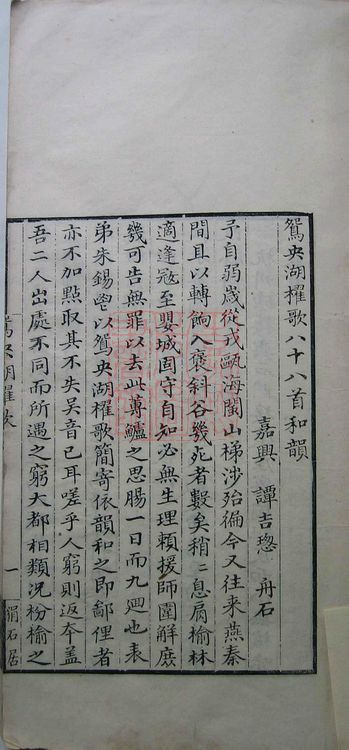 鴛央湖櫂歌八十八首和韻
嘉興 譚吉璁 舟石
予自弱歲從戎甌海閩山梯涉殆徧今又往来燕秦
間且以轉餉入褒斜谷幾死者數矣稍二息肩榆林
適逢冦至嬰城固守自知必無生理頼援師圍解庶
幾可告無罪以去此蓴鱸之思腸一日而九廻也表
弟朱錫鬯以鴛央湖櫂歌簡寄依韻和之即鄙俚者
亦不加點取其不失吴音已耳嗟乎人窮則返夲盖
吾二人出處不同而所遇之窮大都相類況枌榆之
鴛央湖櫂歌
一
絹石居